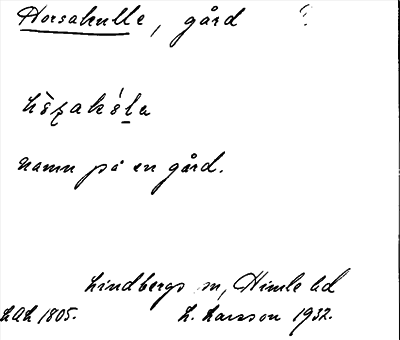 Horsakulle, gård ?
hòʂakúla
namn på en gård.
Lindbergs sn, Himle hd
LAL 1805. L. Larsson 1932.